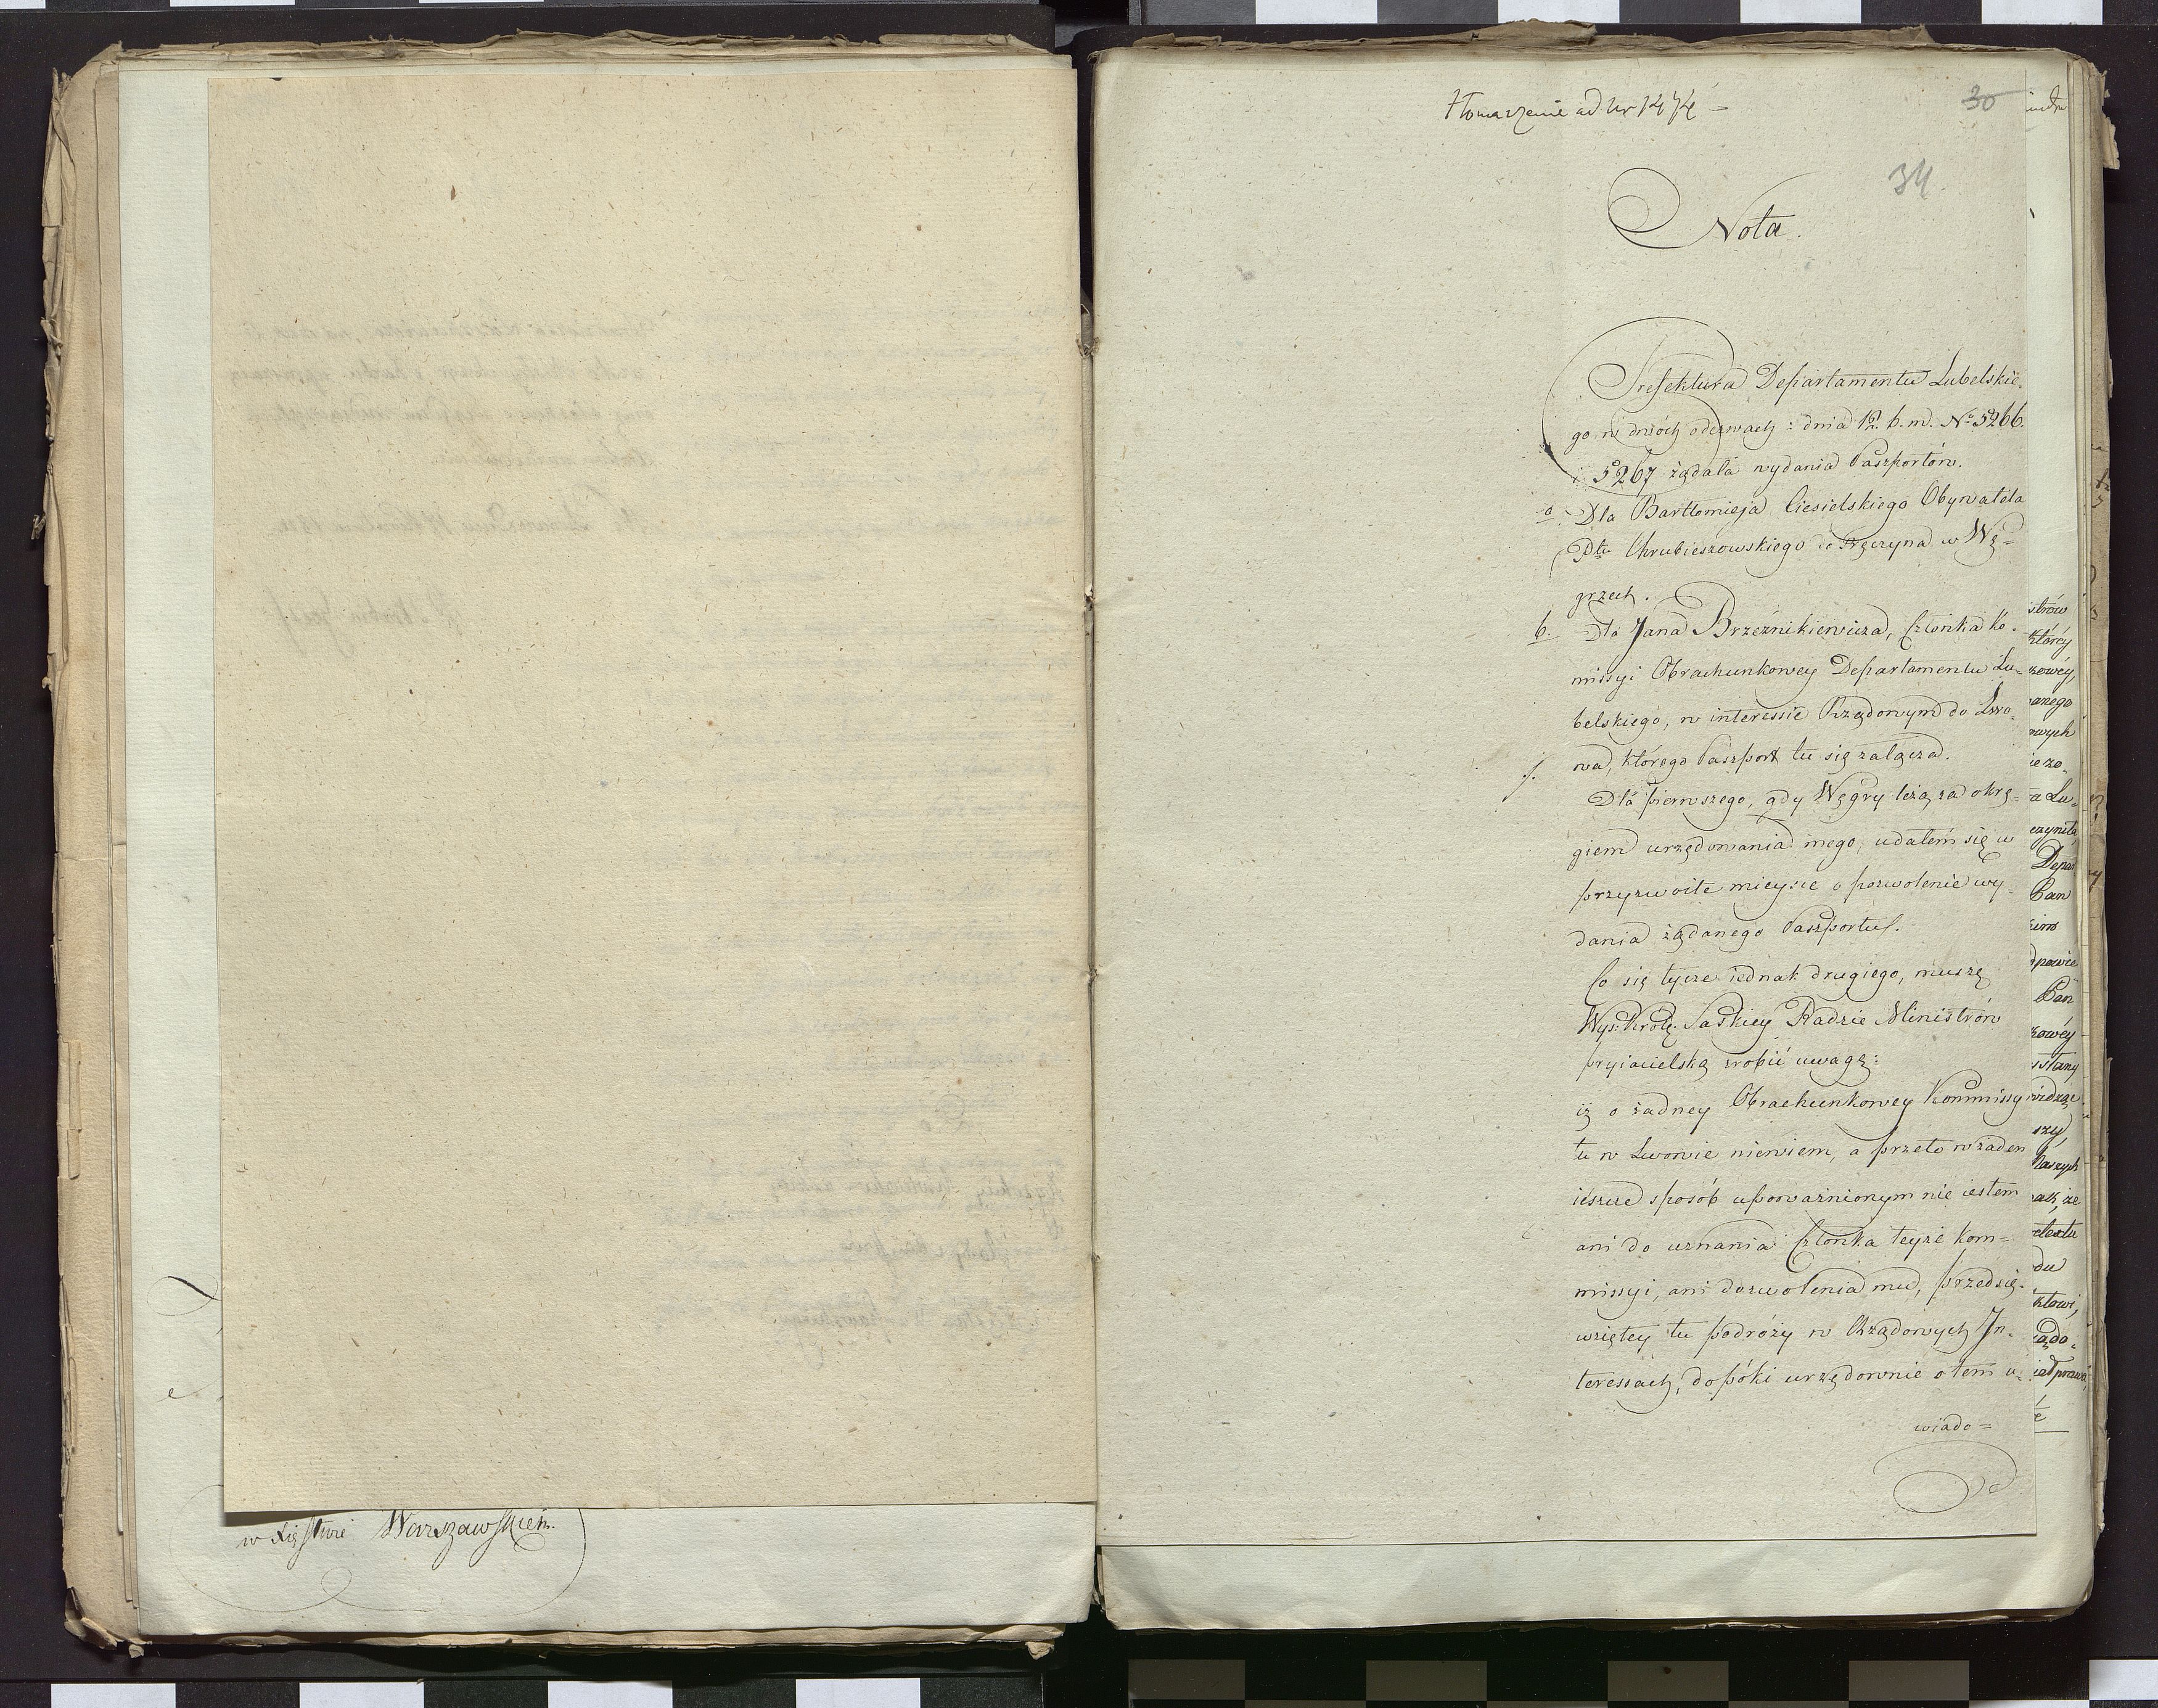 w Xięstwie Warszawskiém.
Tłomaczenie ad Nr 1474
30
34
Nota.
Prefektura Departamentu Lubelskie-
go w dwóch odezwach z dnia 12. b. m. No 5266.
i 5267 żądała wydania Paszportów.
a. Dla Bartłomieja Ciesielskiego Obywatela
Ptu Chrubieszowskiego do w Wę=
grzech.
b. Dla Jana Brzeźnikiewicza, Członka Ko-
missyi Obrachunkowey Departamentu Lu-
belskiego, w interessie Rządowym do Lwo-
wa, którego Paszport tu się załącza.
Dla pierwszego, gdy Węgry leżą za okrę-
giem urzędowania mego, udałem się w
przyzwoite mieysce o pozwolenie wy-
dania żądanego Paszportu.
Co się tycze iednak drugiego, muszę
Wys: Krolę: Saskiey Radzie Ministrów
pryiacielską zrobić uwagę:
iż o żadney Obrachunkowey Kommissy
tu w Lwowie niewiem, a przeto w żaden
ieszcze sposób upoważnionym nie iestem
ani do uznania Członka teyże Kom=
missyi, ani dozwolenia mu, przedsię-
wziętey tu podróży w Rządowych In-
teressach, dopóki urzędownie o tem u-
wiado=
strów
którcy
zowéy,
anego
wych
Depar
Pan
Pan
kowéy